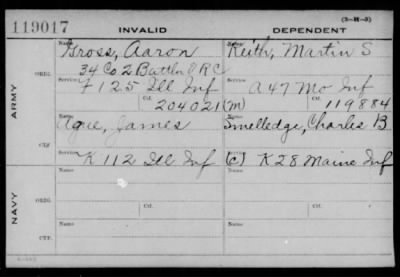 (3-H-3)
119017 INVALID DEPENDENT
ARMY
ORIG.
Name Gross, Aaron
34 Co 2 Battln V R C
Service F 125 Ill Inf
Ctf. 204021 (M)
Name Keith, Martin S
Service A 47 Mo Inf
Ctf. 119884
CTF.
Name James
Service K 112 Ill Inf
Name Smelledge, Charles B
Service (C) K 28 Maine Inf
NAVY
ORIG.
Name
Service
Ctf.
Name
Service
Ctf.
CTF.
Name
Service
Name
Service